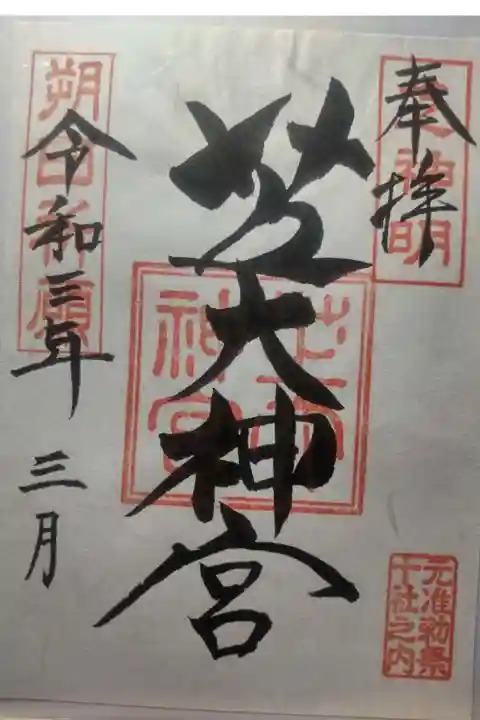 奉拝
芝神明
芝大神宮
芝大神宮
令和三年 三月
朔日祈願
元准勅祭
十社之内